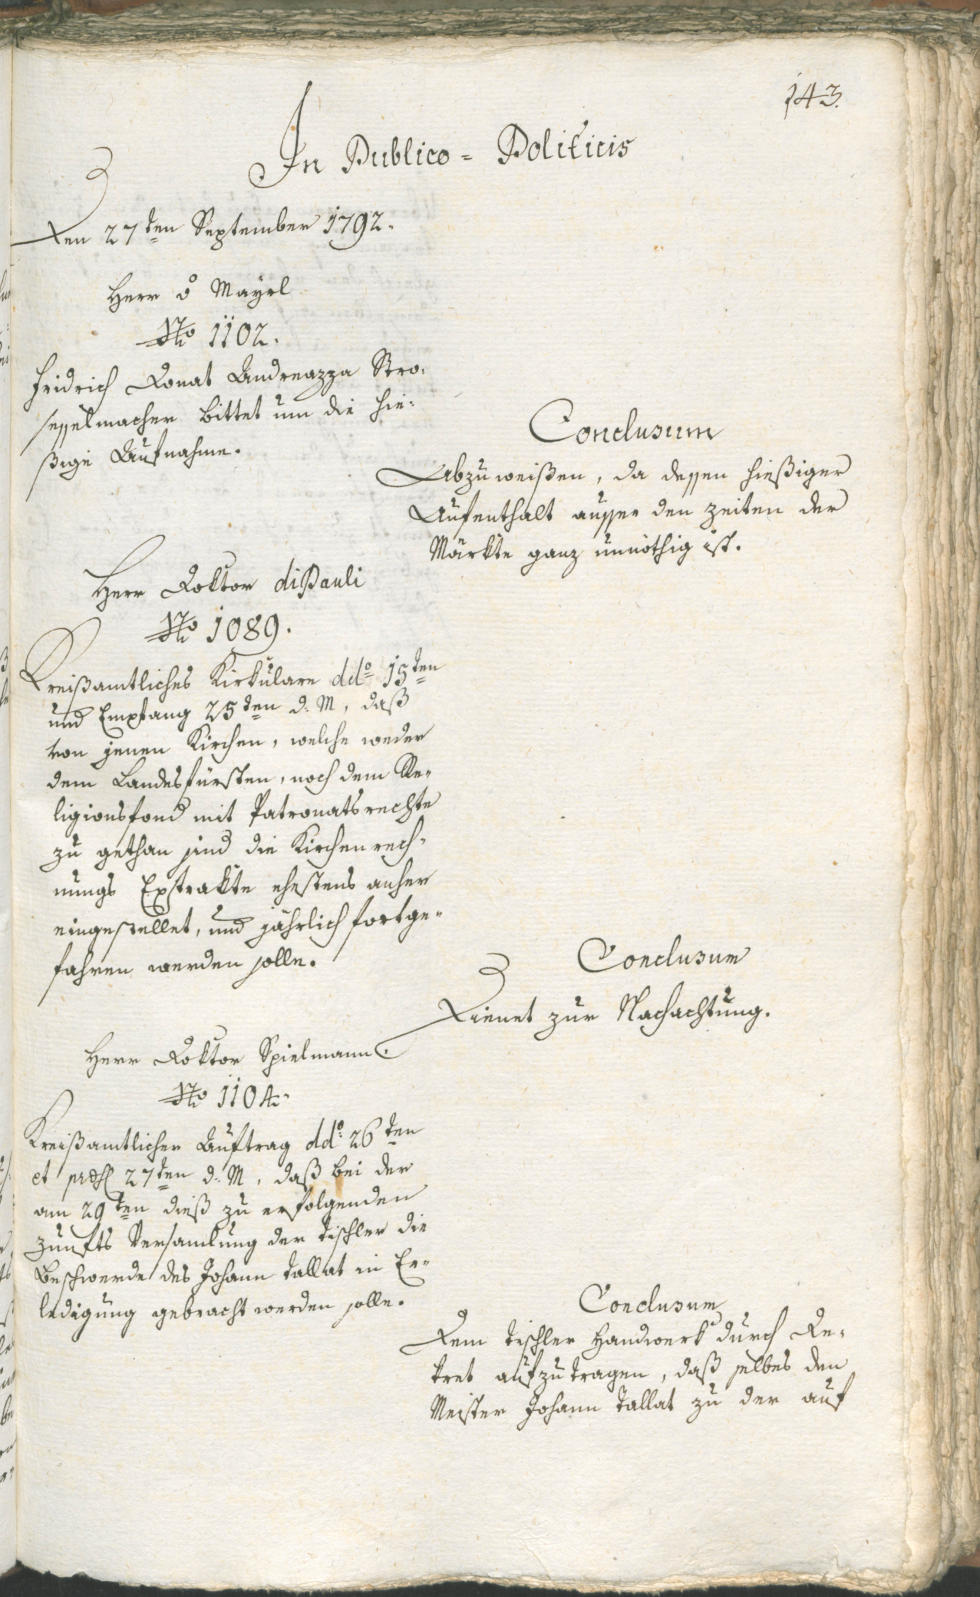 143.
In Publico = Politicis
Den 27ten September 1792.
Herr v Mayrl
No 1102.
Fridrich Donat Andreazza Stro-
sesselmacher bittet um die hie-
ßige Aufnahme.
Conclusum
Abzuweißen, da dessen hießiger
Aufenthalt ausser den Zeiten der
Märkte ganz unnöthig ist.
Herr Doktor diPauli
No 1089.
Kreißamtliches Zirkulare ddo 15ten
und Empfang 25ten d. M, daß
von jenen Kirchen, welche weder
dem Landesfürsten, noch dem Re-
ligionsfond mit Patronatsrechte
zu gethan sind die Kirchenrech-
nungs Extrakte ehestens anher
eingestellet, und jährlich fortge-
fahren werden solle.
Conclusum
Dienet zur Nachachtung.
Herr Doktor Spielmann
No 1104.
Kreißamtlicher Auftrag ddo 26ten
et 27ten d. M, daß bei der
am 29ten dieß zu erfolgenden
Zunfts Versamlung der Tischler die
Beschwerde des Johann Tallat in Er-
ledigung gebracht werden solle.
Conclusum
Dem Tischler Handwerk durch De-
kret aufzutragen, daß selbes den
Meister Johann Tallat zu der auf